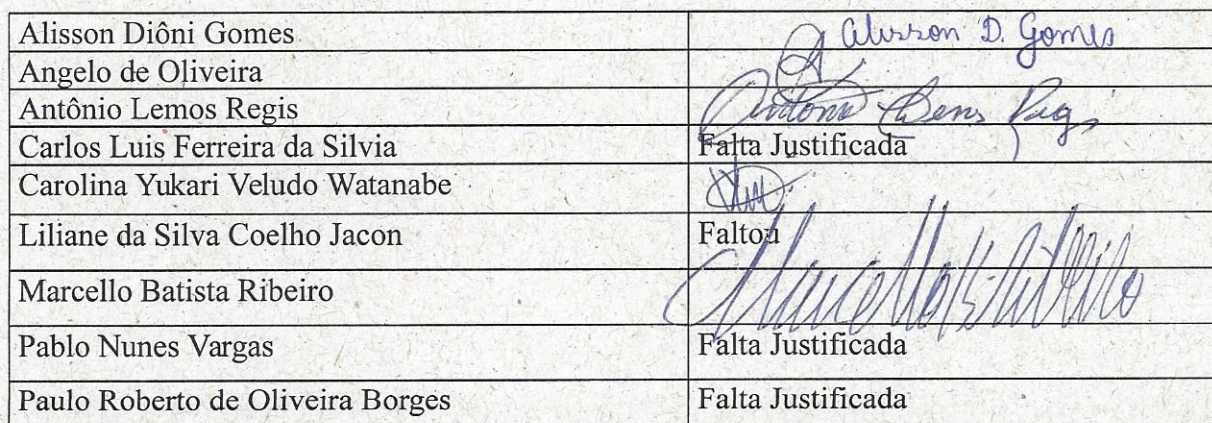 Alisson Diôni Gomes Alisson D. Gomes
Angelo de Oliveira
Antônio Lemos Regis
Carlos Luis Ferreira da Silvia Falta Justificada
Carolina Yukari Veludo Watanabe
Liliane da Silva Coelho Jacon Faltou
Marcello Batista Ribeiro
Pablo Nunes Vargas Falta Justificada
Paulo Roberto de Oliveira Borges Falta Justificada